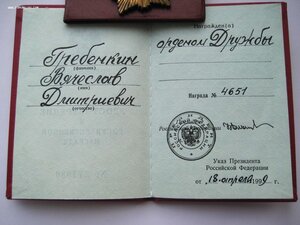 Гребенкин
(фамилия)
Вячеслав
(имя)
Дмитриевич
(отчество)
Награжден(а)
орденом Дружбы
Награда № 4651
Российской
Указ Президента
Российской Федерации
от 18 апреля 199